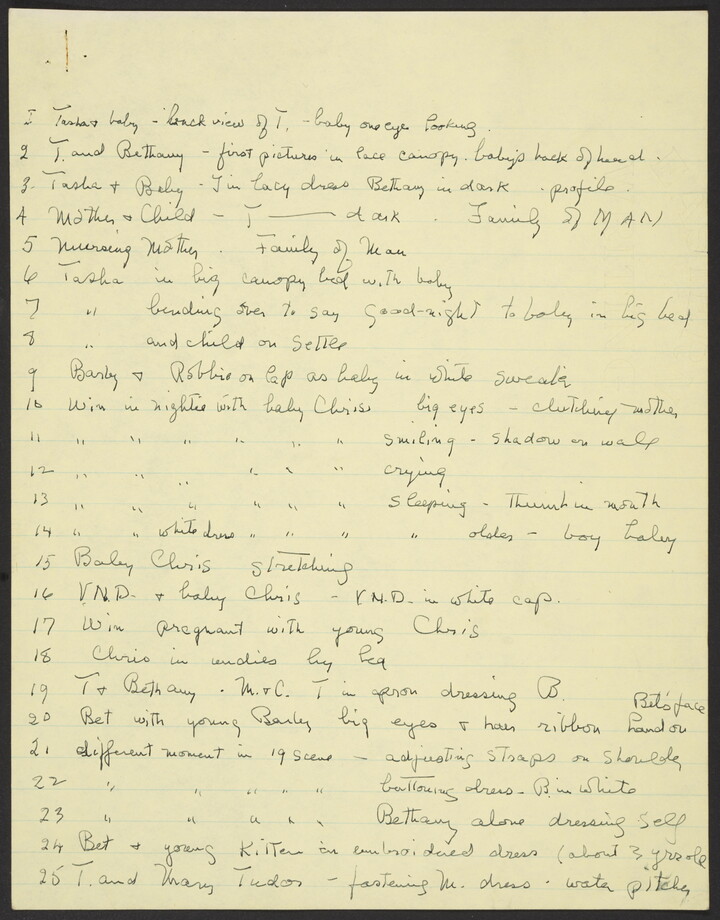 1 Tasha & baby - back view of T. - baby one eye looking.
2 T. and Bethany - first pictures in lace canopy. baby's back of head.
3. Tasha & Baby - T in lacy dress Bethany in dark. profile.
4 Mother & Child - T —— dark. Family of MAN
5 Nursing Mother. Family of Man
6 Tasha in big canopy bed with baby
7 " bending over to say good-night to baby in big bed
8 " and child on settle
9 Barby & Robbie on lap as baby in white sweater
10 Win in nightie with baby Chris big eyes - clutching mother
11 " " " " " " smiling - shadow on wall
12 " " " " " " crying
13 " " " " " " sleeping - thumb in mouth
14 " " white dress " " " " older - boy baby
15 Baby Chris stretching
16 V.N.D. & baby Chris - V.N.D. in white cap.
17 Win pregnant with young Chris
18 Chris in undies by
19 T & Bethany. M. & C. T in apron dressing B.
Bet's face
20 Bet with young Barby big eyes & hair ribbon hand on
21 different moment in 19 scene - adjusting straps on shoulder
22 " " " " " buttoning dress - B. in white
23 " " " " " Bethany alone dressing self
24 Bet & young Kitten in embroidered dress (about 3 yrs old
25 T. and Mary Tudor - fastening M. dress. water pitcher